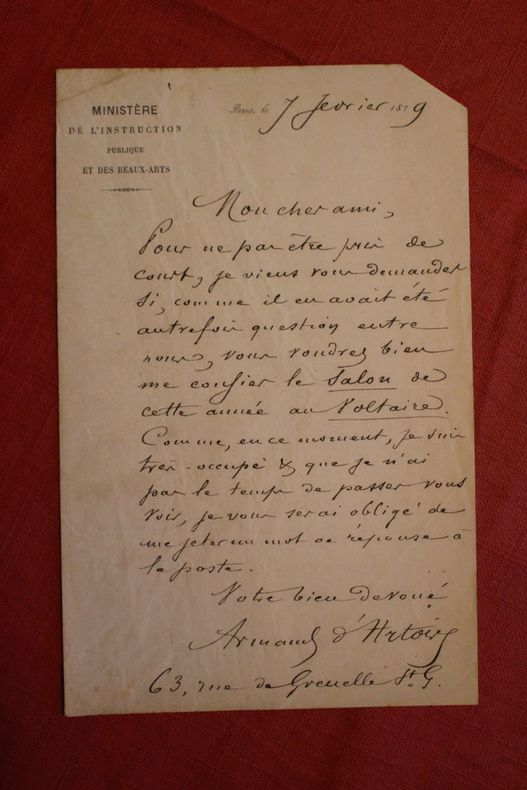 MINISTÈRE
DE L'INSTRUCTION
PUBLIQUE
ET DES BEAUX-ARTS
Paris, le 7 fevrier 1879
Mon cher ami,
Pour ne pas être pris de
court, je viens vous demander
si, comme il en avait été
autrefois question entre
nous, vous voudrez bien
me confier le Salon de
cette année au Voltaire.
Comme, en ce moment, je suis
très-occupé & que je n'ai
pas le temps de passer vous
voir, je vous serai obligé de
me jeter un mot de réponse à
la poste.
Votre bien dévoué
Armand d'Artois
63, rue de Grenelle St. G.